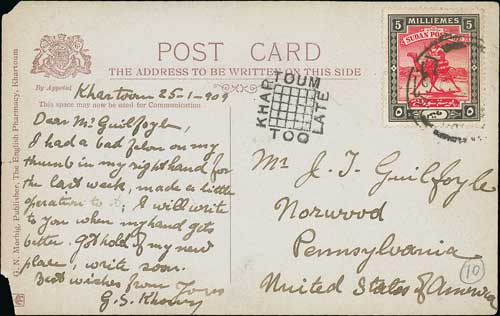 POST CARD
THE ADDRESS TO BE WRITTEN ON THIS SIDE
By Appointed
Khartoum 25-1-909
This space may now be used for Communication
Dear Mr Guilfoyle,
I had a bad felon on my
thumb in my right hand for
the last week, made a little
operation to it; I will write
to you when my hand gets
better. Got hold of my new
place, write soon.
Best wishes from Yours
G. S. Khoury
G. N. Morhig, Publisher, The English Pharmacy, Khartoum
KHARTOUM
TOO LATE
5 MILLIEMES 5
SUDAN POSTAGE
Mr J. T. Guilfoyle
Norwood
Pennsylvania
United States of America
10